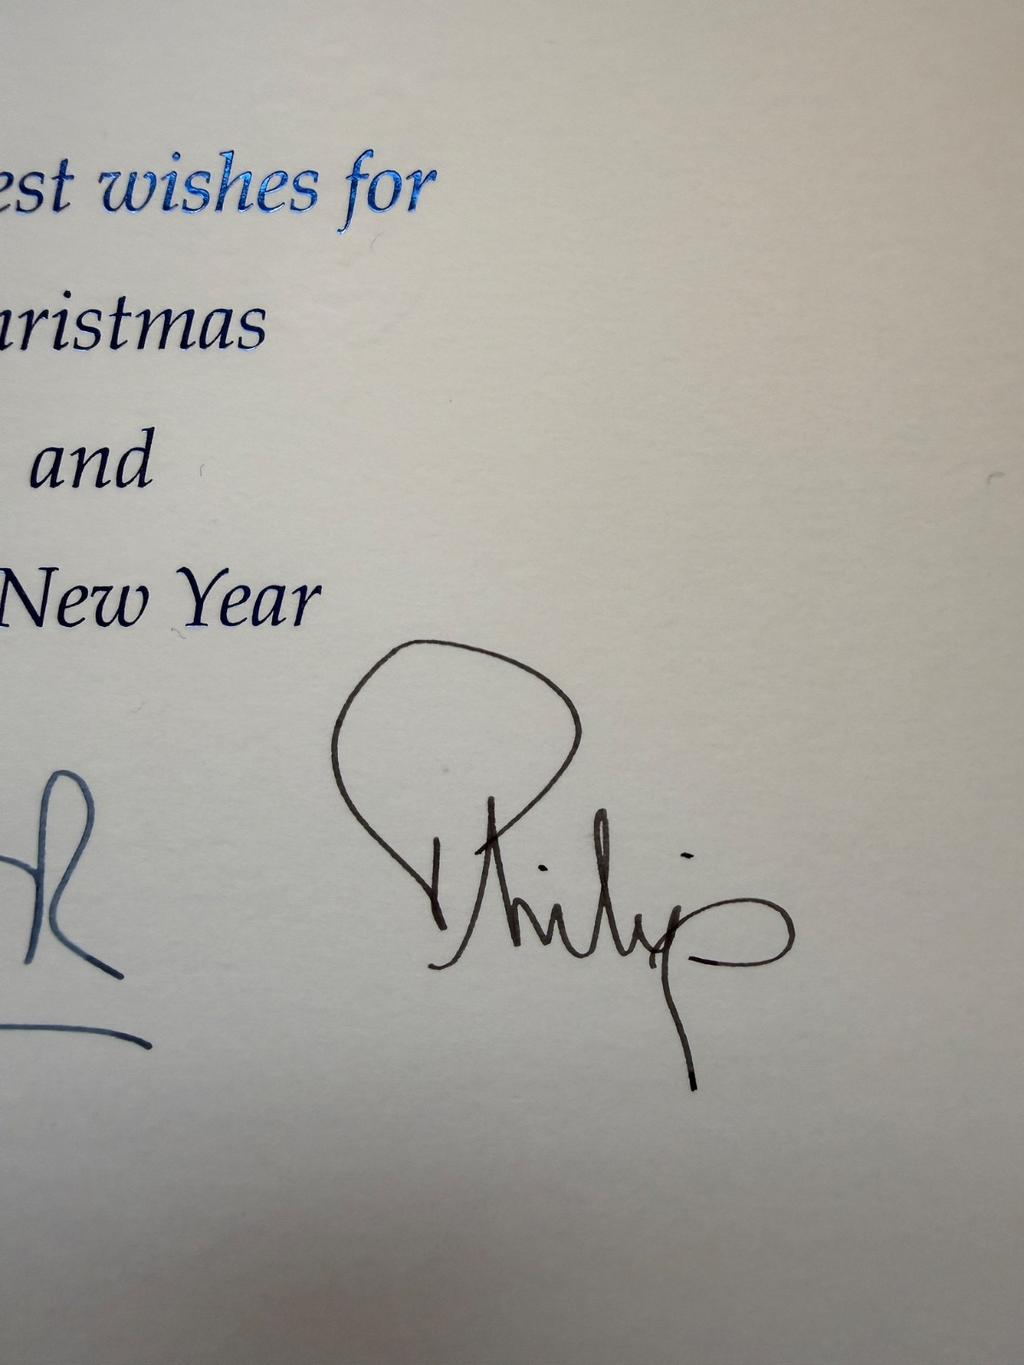 est wishes for
ristmas
and
New Year
R Philip